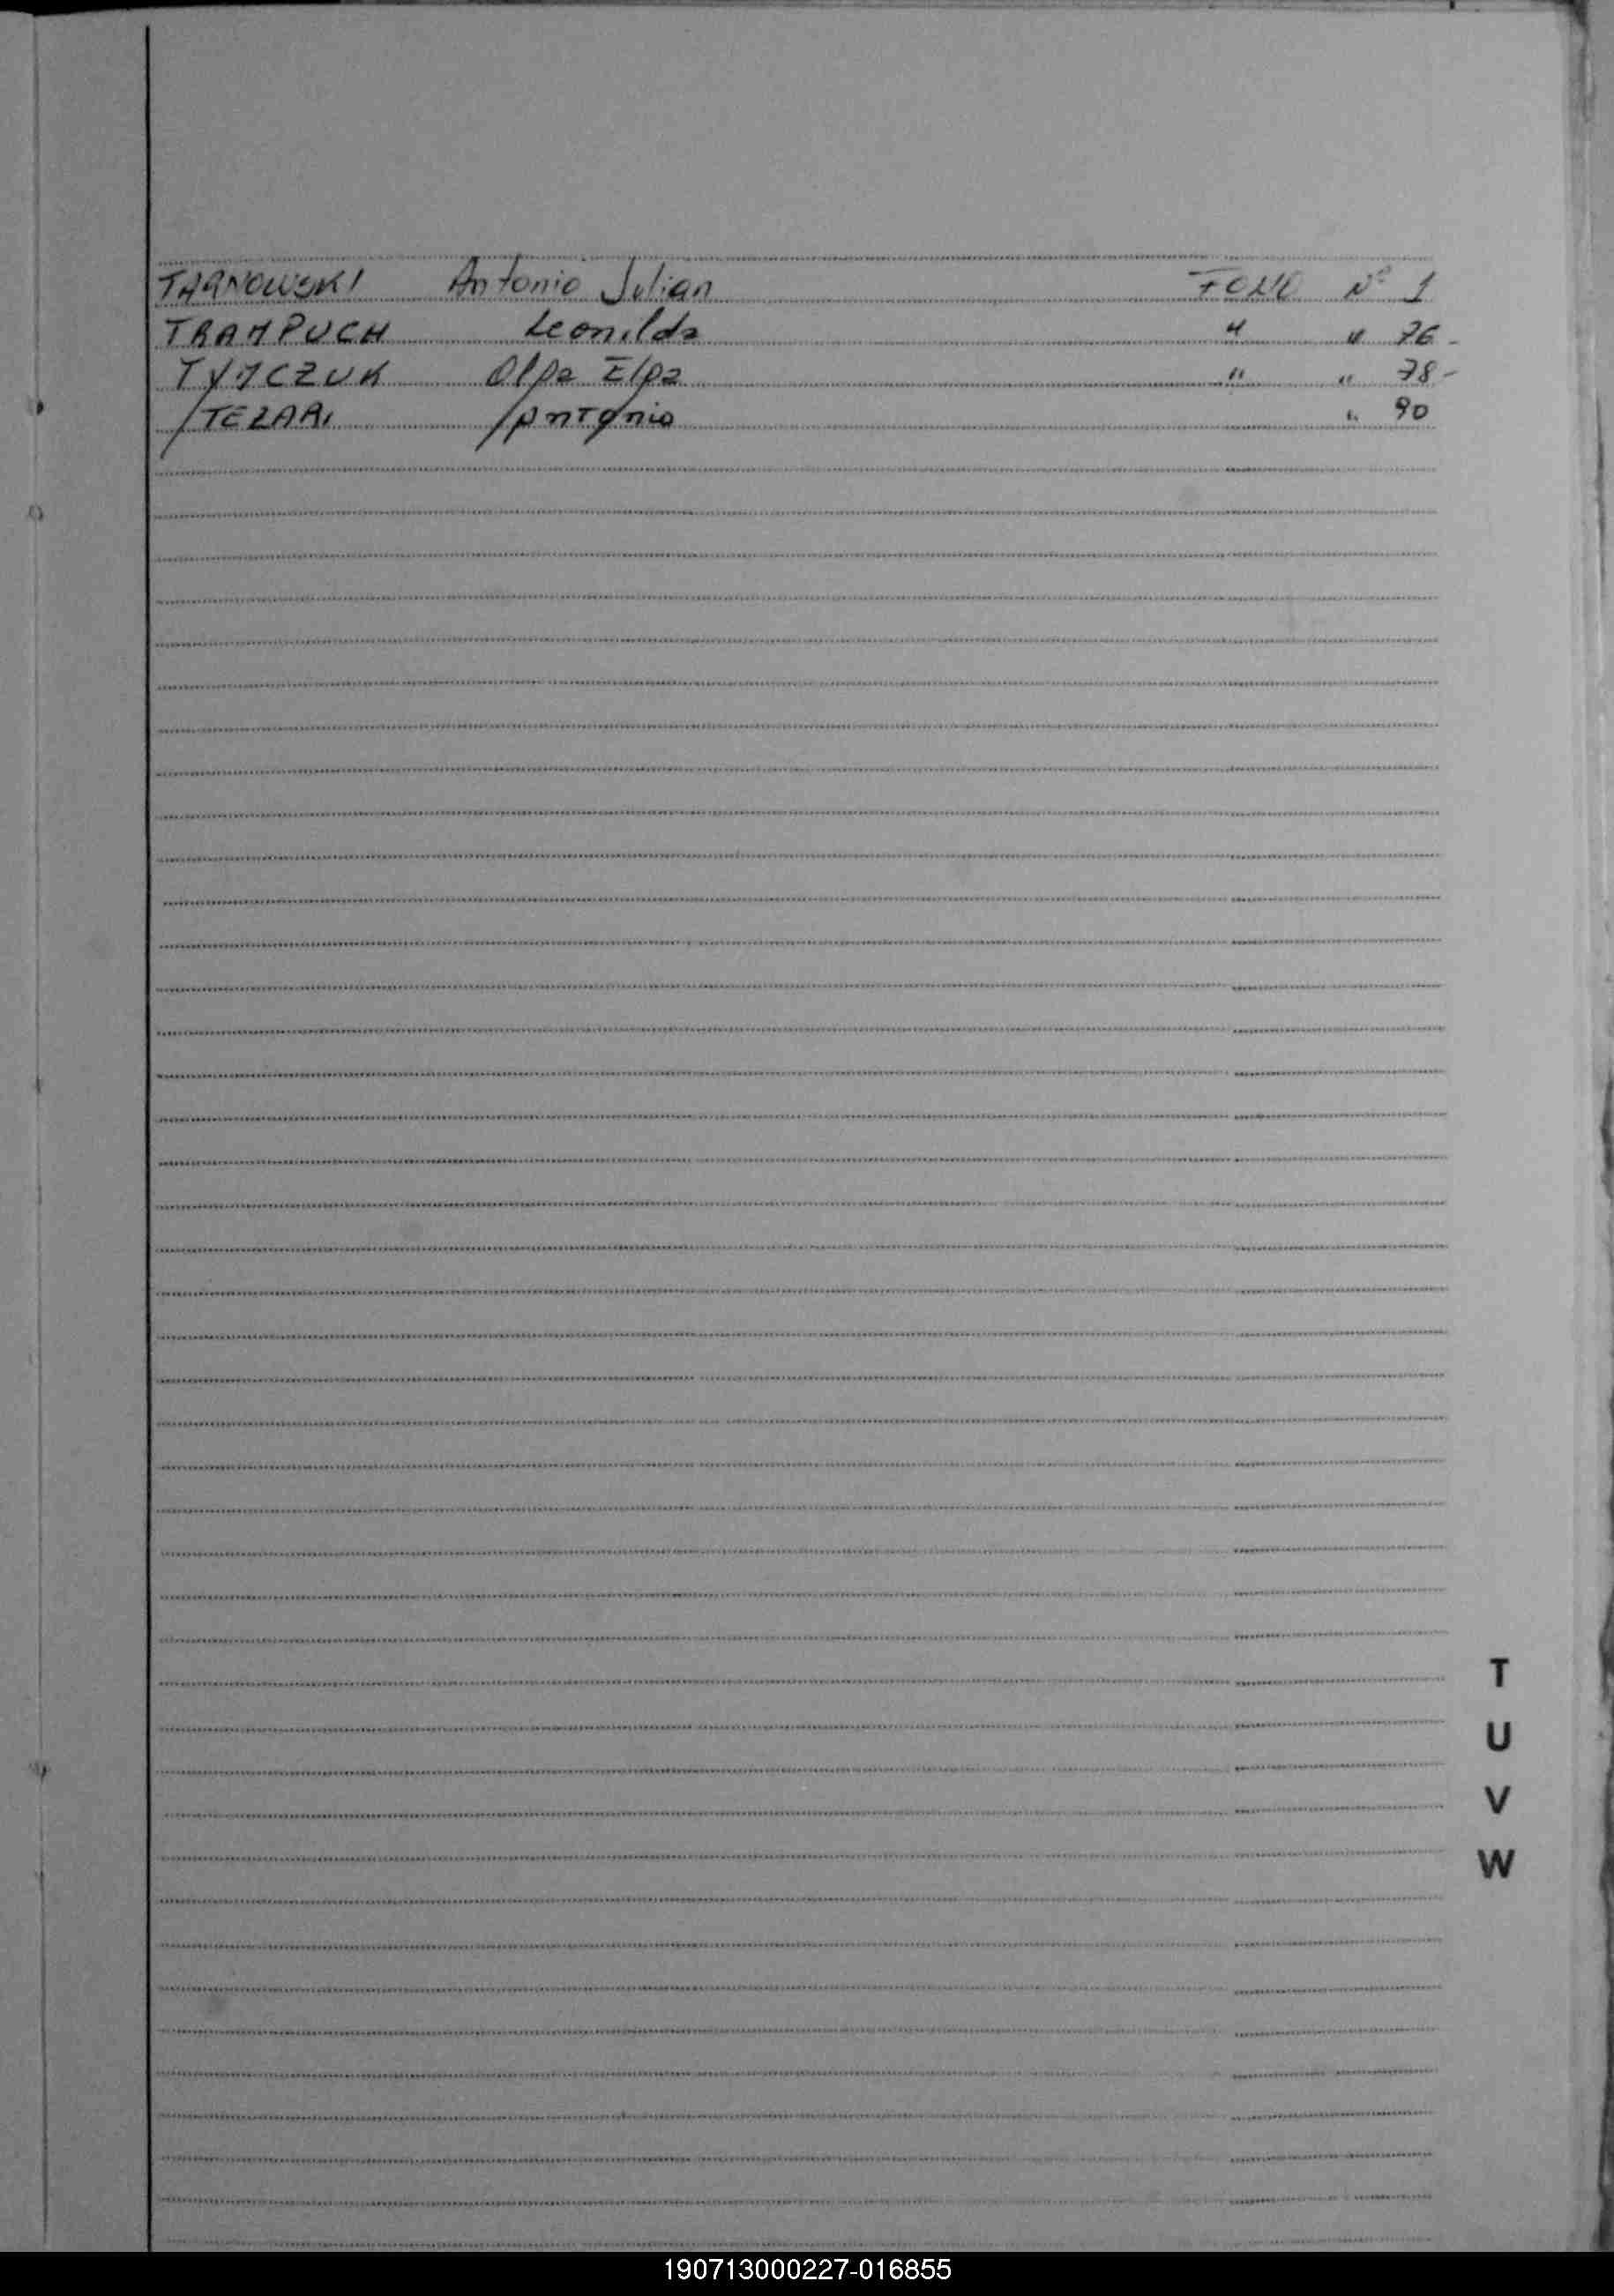 TARNOWSKI Antonio Julian FOLIO Nº 1
TRAMPUCH Leonilda " " 76-
TYMCZUK Olga Elga " " 78-
TEZARI Antonio " 90
T
U
V
W
190713000227-016855